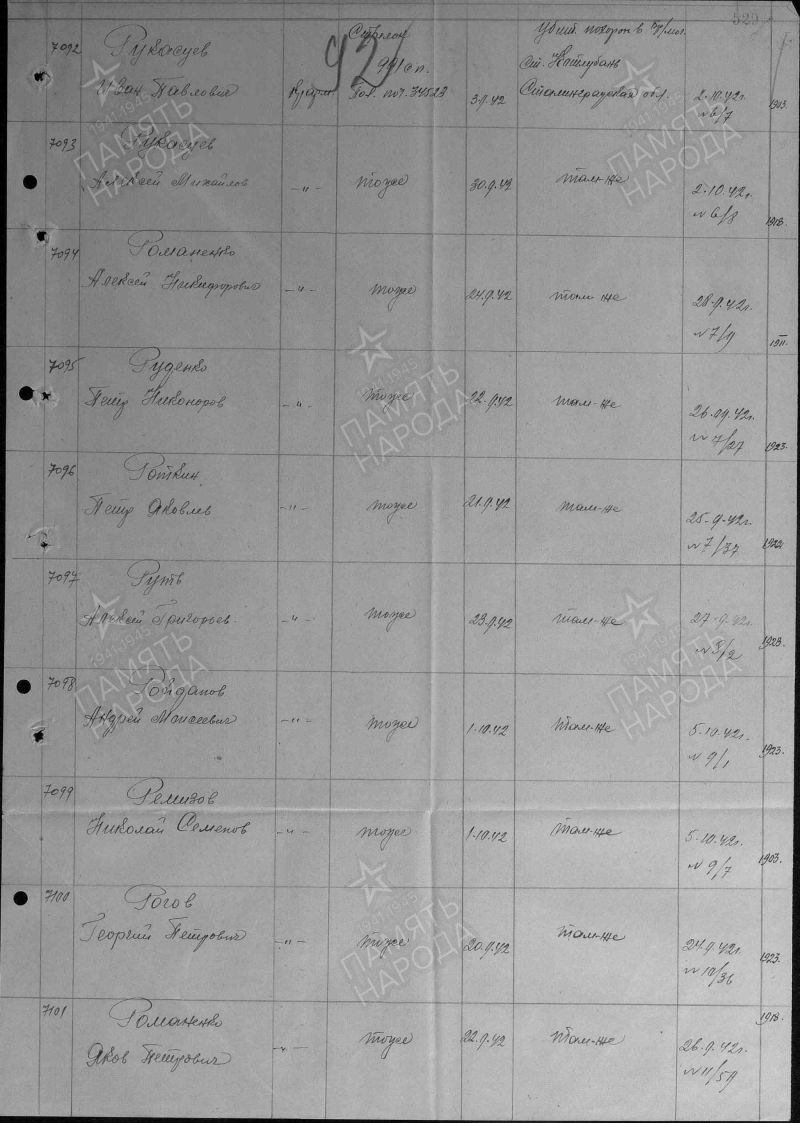 529
7092 Рукасуев Стрелок Убит похорон в бр/мог.
42
991 сп. ст. Котлубань
Иван Павлович Кр-арм Пол. поч. 34523 3.9.42 Сталинградская обл. 2.10.42г. 1903.
№ 6/7
7093 Рукасуев
Алексей Михайлов —„— тоже 30.9.42 там-же 2.10.42г.
№ 6/8 1918.
7094 Романенко
Алексей Никифорович —„— тоже 24.9.42 там же 28.9.42г.
№ 7/9 1911.
7095 Руденко
Петр Никоноров —„— тоже 22.9.42 там-же 26.09.42г.
№ 7/27 1923.
7096 Роткин
Петр Яковлев —„— тоже 21.9.42 там-же 25.9.42г.
№ 7/37 1922
7097 Руть
Алексей Григорьев —„— тоже 23.9.42 там-же 27.9.42г.
№ 5/2 1923.
7098 Рогданов
Андрей Моисеевич —„— тоже 1.10.42 там-же 5.10.42г.
№ 9/1 1923.
7099 Ремизов
Николай Семенов —„— тоже 1.10.42 там-же 5.10.42г.
№ 9/7 1903.
7100 Рогов
Георгий Петрович —„— тоже 20.9.42 там-же 24.9.42г.
№ 10/36 1923.
7101 Романенко 1918.
Яков Петрович —„— тоже 22.9.42 там-же 26.9.42г.
№ 11/59
1941-1945
ПАМЯТЬ
НАРОДА